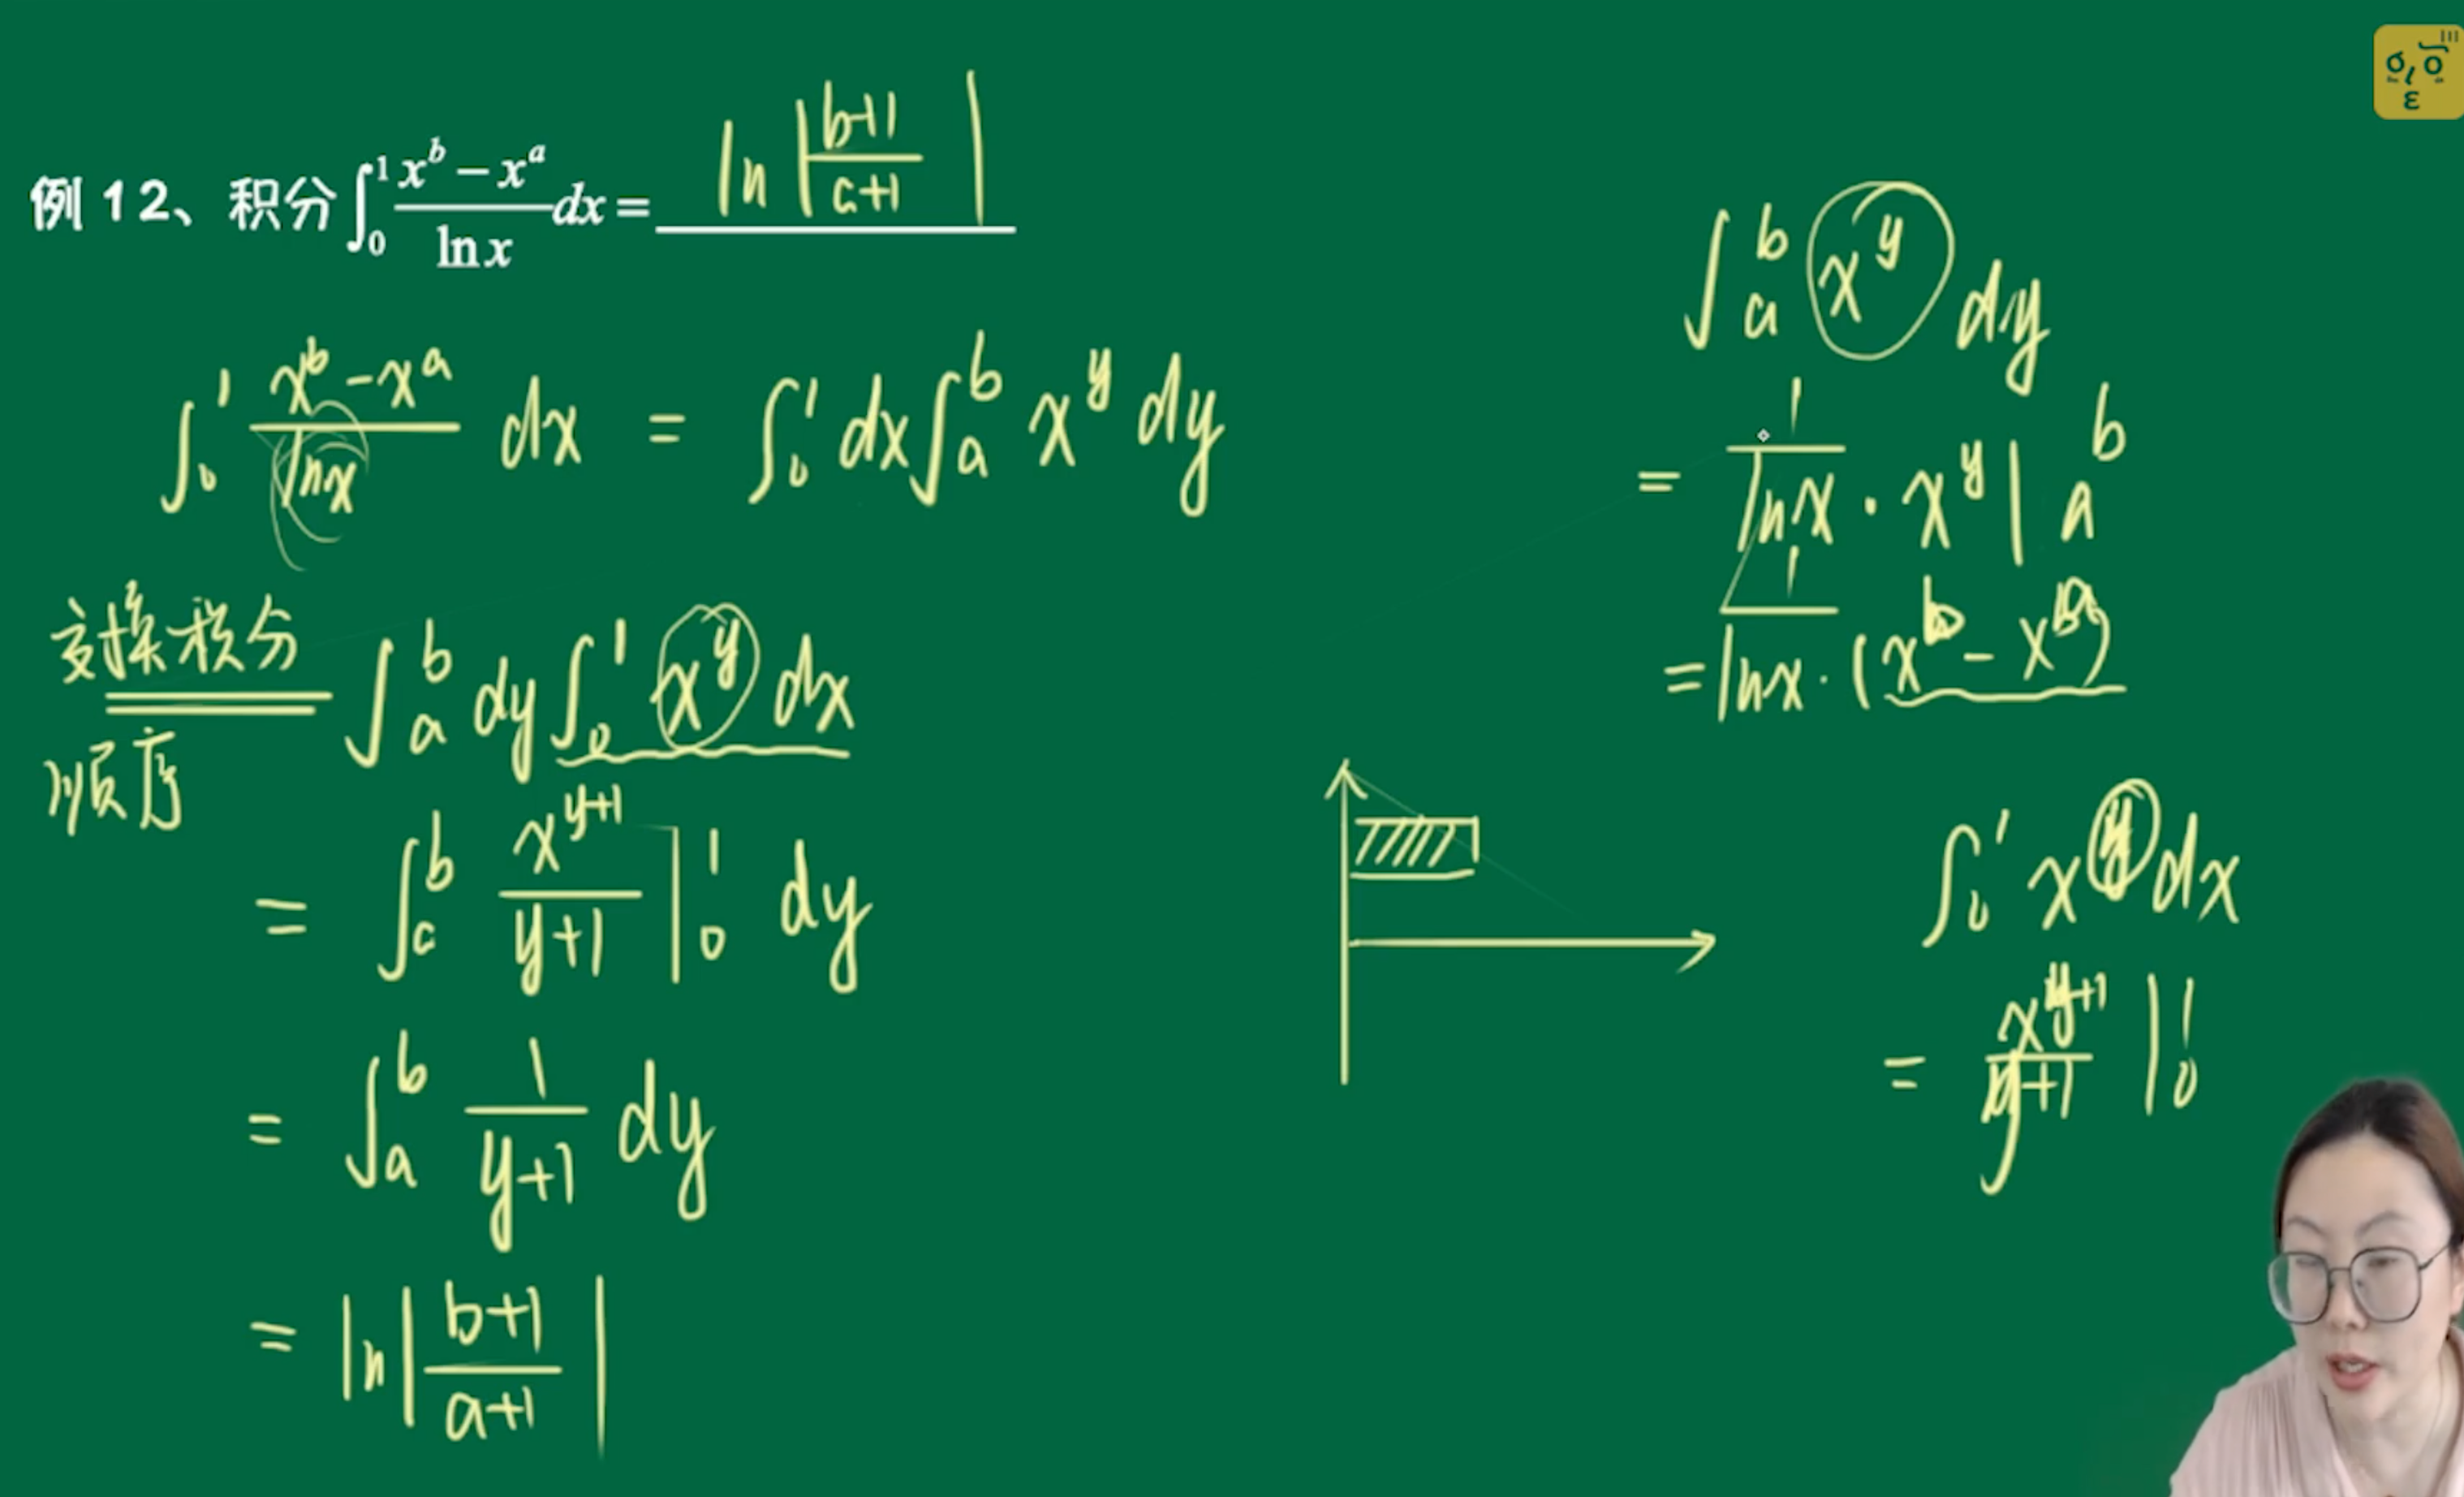 例12、积分∫₀¹ (x^b − x^a)/(ln x) dx = ln|(b+1)/(a+1)|
∫₀¹ (x^b − x^a)/(ln x) dx = ∫₀¹ dx ∫ₐᵇ x^y dy
交换积分
顺序
∫ₐᵇ dy ∫₀¹ x^y dx
= ∫ₐᵇ x^(y+1)/(y+1) |₀¹ dy
= ∫ₐᵇ 1/(y+1) dy
= ln|(b+1)/(a+1)|
∫ₐᵇ x^y dy
= 1/(ln x) · x^y |ₐᵇ
= 1/(ln x) · (x^b − x^a)
∫₀¹ x^y dx
= x^(y+1)/(y+1) |₀¹